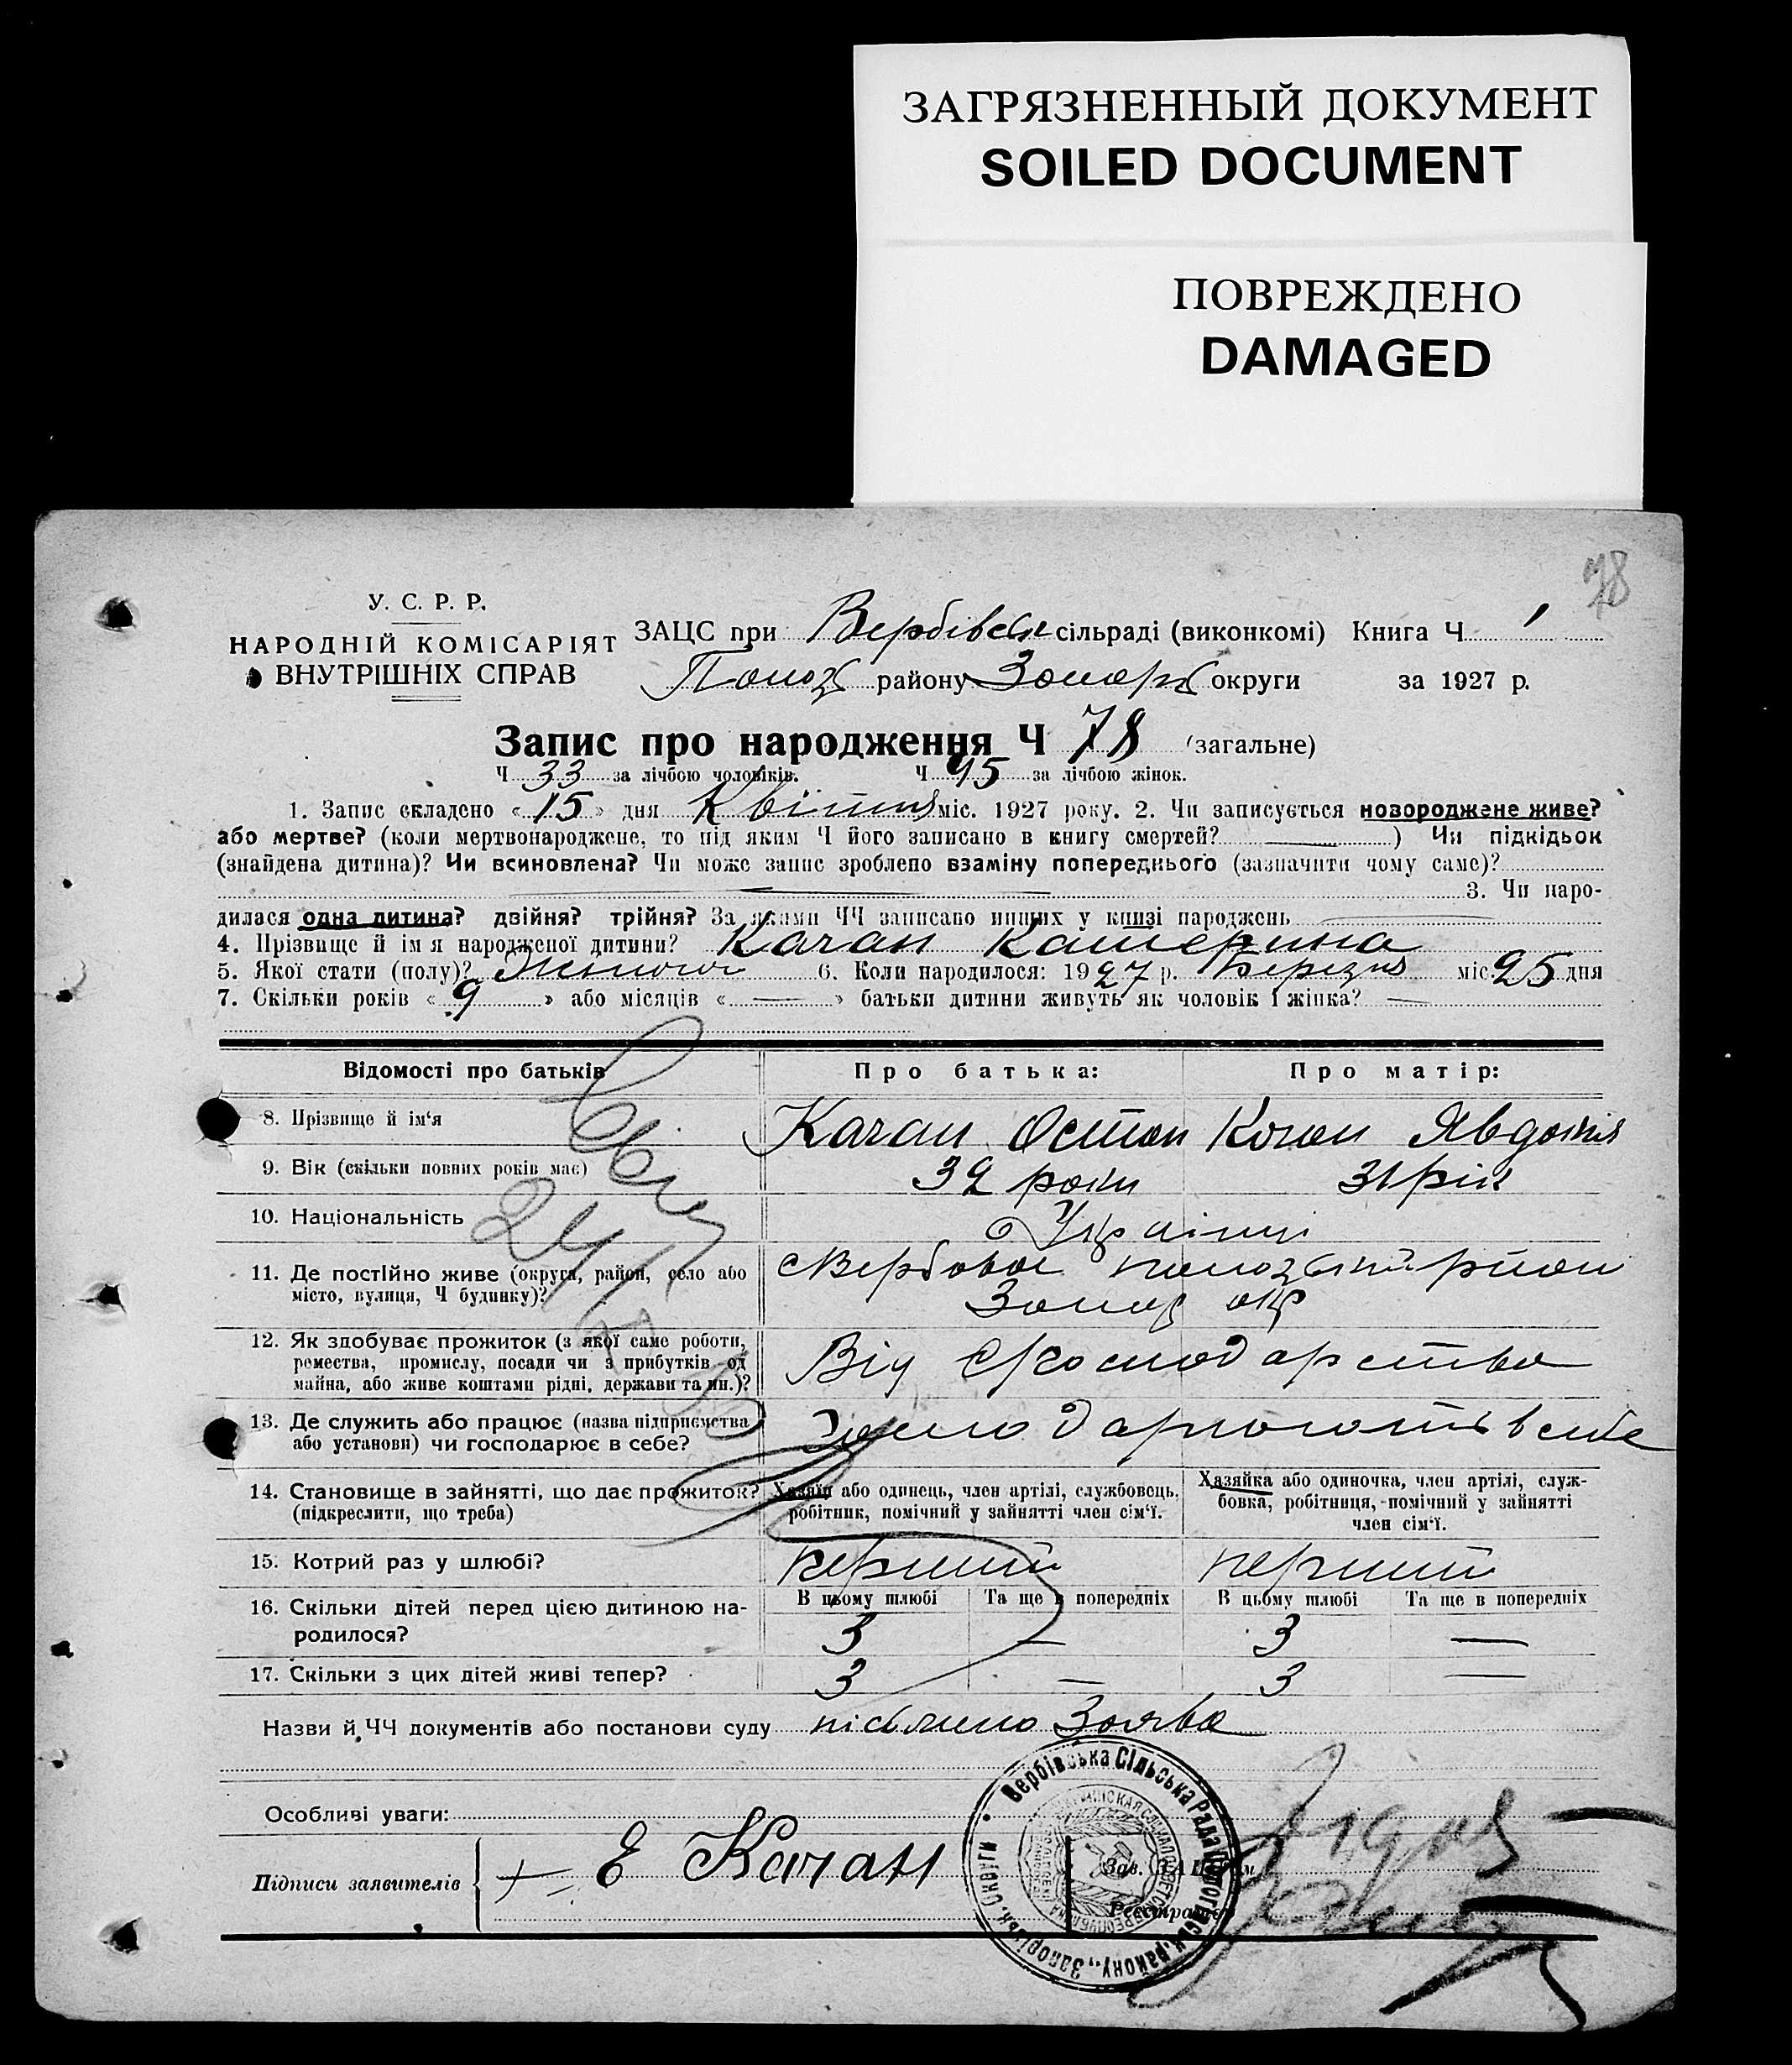 ЗАГРЯЗНЕННЫЙ ДОКУМЕНТ
SOILED DOCUMENT
ПОВРЕЖДЕНО
DAMAGED
78
У. С. Р. Р.
НАРОДНІЙ КОМІСАРІЯТ
ВНУТРІШНІХ СПРАВ
ЗАЦС при Вербівськ сільраді (виконкомі) Книга Ч 1
району округи за 1927 р.
Запис про народження Ч 78 (загальне)
Ч 33 за лічбою чоловіків. Ч 45 за лічбою жінок.
1. Запис складено « 15 » дня Квітня міс. 1927 року. 2. Чи записується новороджене живе?
або мертве? (коли мертвонароджене, то під яким Ч його записано в книгу смертей? ) Чи підкідьок
(знайдена дитина)? Чи всиновлена? Чи може запис зроблено взаміну попереднього (зазначити чому саме)?
3. Чи наро-
дилася одна дитина? двійня? трійня? За якими ЧЧ записано инших у книзі народжень
4. Прізвище й ім'я народженої дитини? Качан Катерина
5. Якої стати (полу)? Жіночої 6. Коли народилося: 1927 р. Березня міс. 25 дня
7. Скільки років « 9 » або місяців « — » батьки дитини живуть як чоловік і жінка? —
Відомості про батьків Про батька: Про матір:
8. Прізвище й ім'я Качан Остап Качан Явдокія
9. Вік (скільки повних років має) 32 роки 31 рік
10. Національність Українці
11. Де постійно живе (округа, район, село або
місто, вулиця, Ч будинку)? с Вербове район
Запор окр
12. Як здобуває прожиток (з якої саме роботи,
ремества, промислу, посади чи з прибутків од
майна, або живе коштами рідні, держави та ин.)? Від с/господарства
13. Де служить або працює (назва підприємства
або установи) чи господарює в себе? в себе
14. Становище в зайнятті, що дає прожиток?
(підкреслити, що треба)
Хазяїн або одинець, член артілі, службовець,
робітник, помічний у зайнятті член сім'ї.
Хазяйка або одиночка, член артілі, служ-
бовка, робітниця, помічний у зайнятті
член сім'ї.
15. Котрий раз у шлюбі? перший перший
В цьому шлюбі Та ще в попередніх В цьому шлюбі Та ще в попередніх
16. Скільки дітей перед цією дитиною на-
родилося? 3 — 3 —
17. Скільки з цих дітей живі тепер? 3 — 3 —
Назви й ЧЧ документів або постанови суду письмено Заява
Особливі уваги:
Підписи заявителів Е Качан
Зав. ЗАЦСом
Реєстратор
Вербівська Сільська Рада Пологівськ. району, Запорізьк. Округи